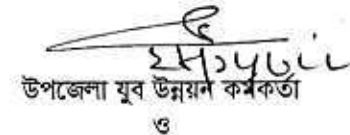 উপজেলা যুব উন্নয়ন কর্মকর্তা
ও